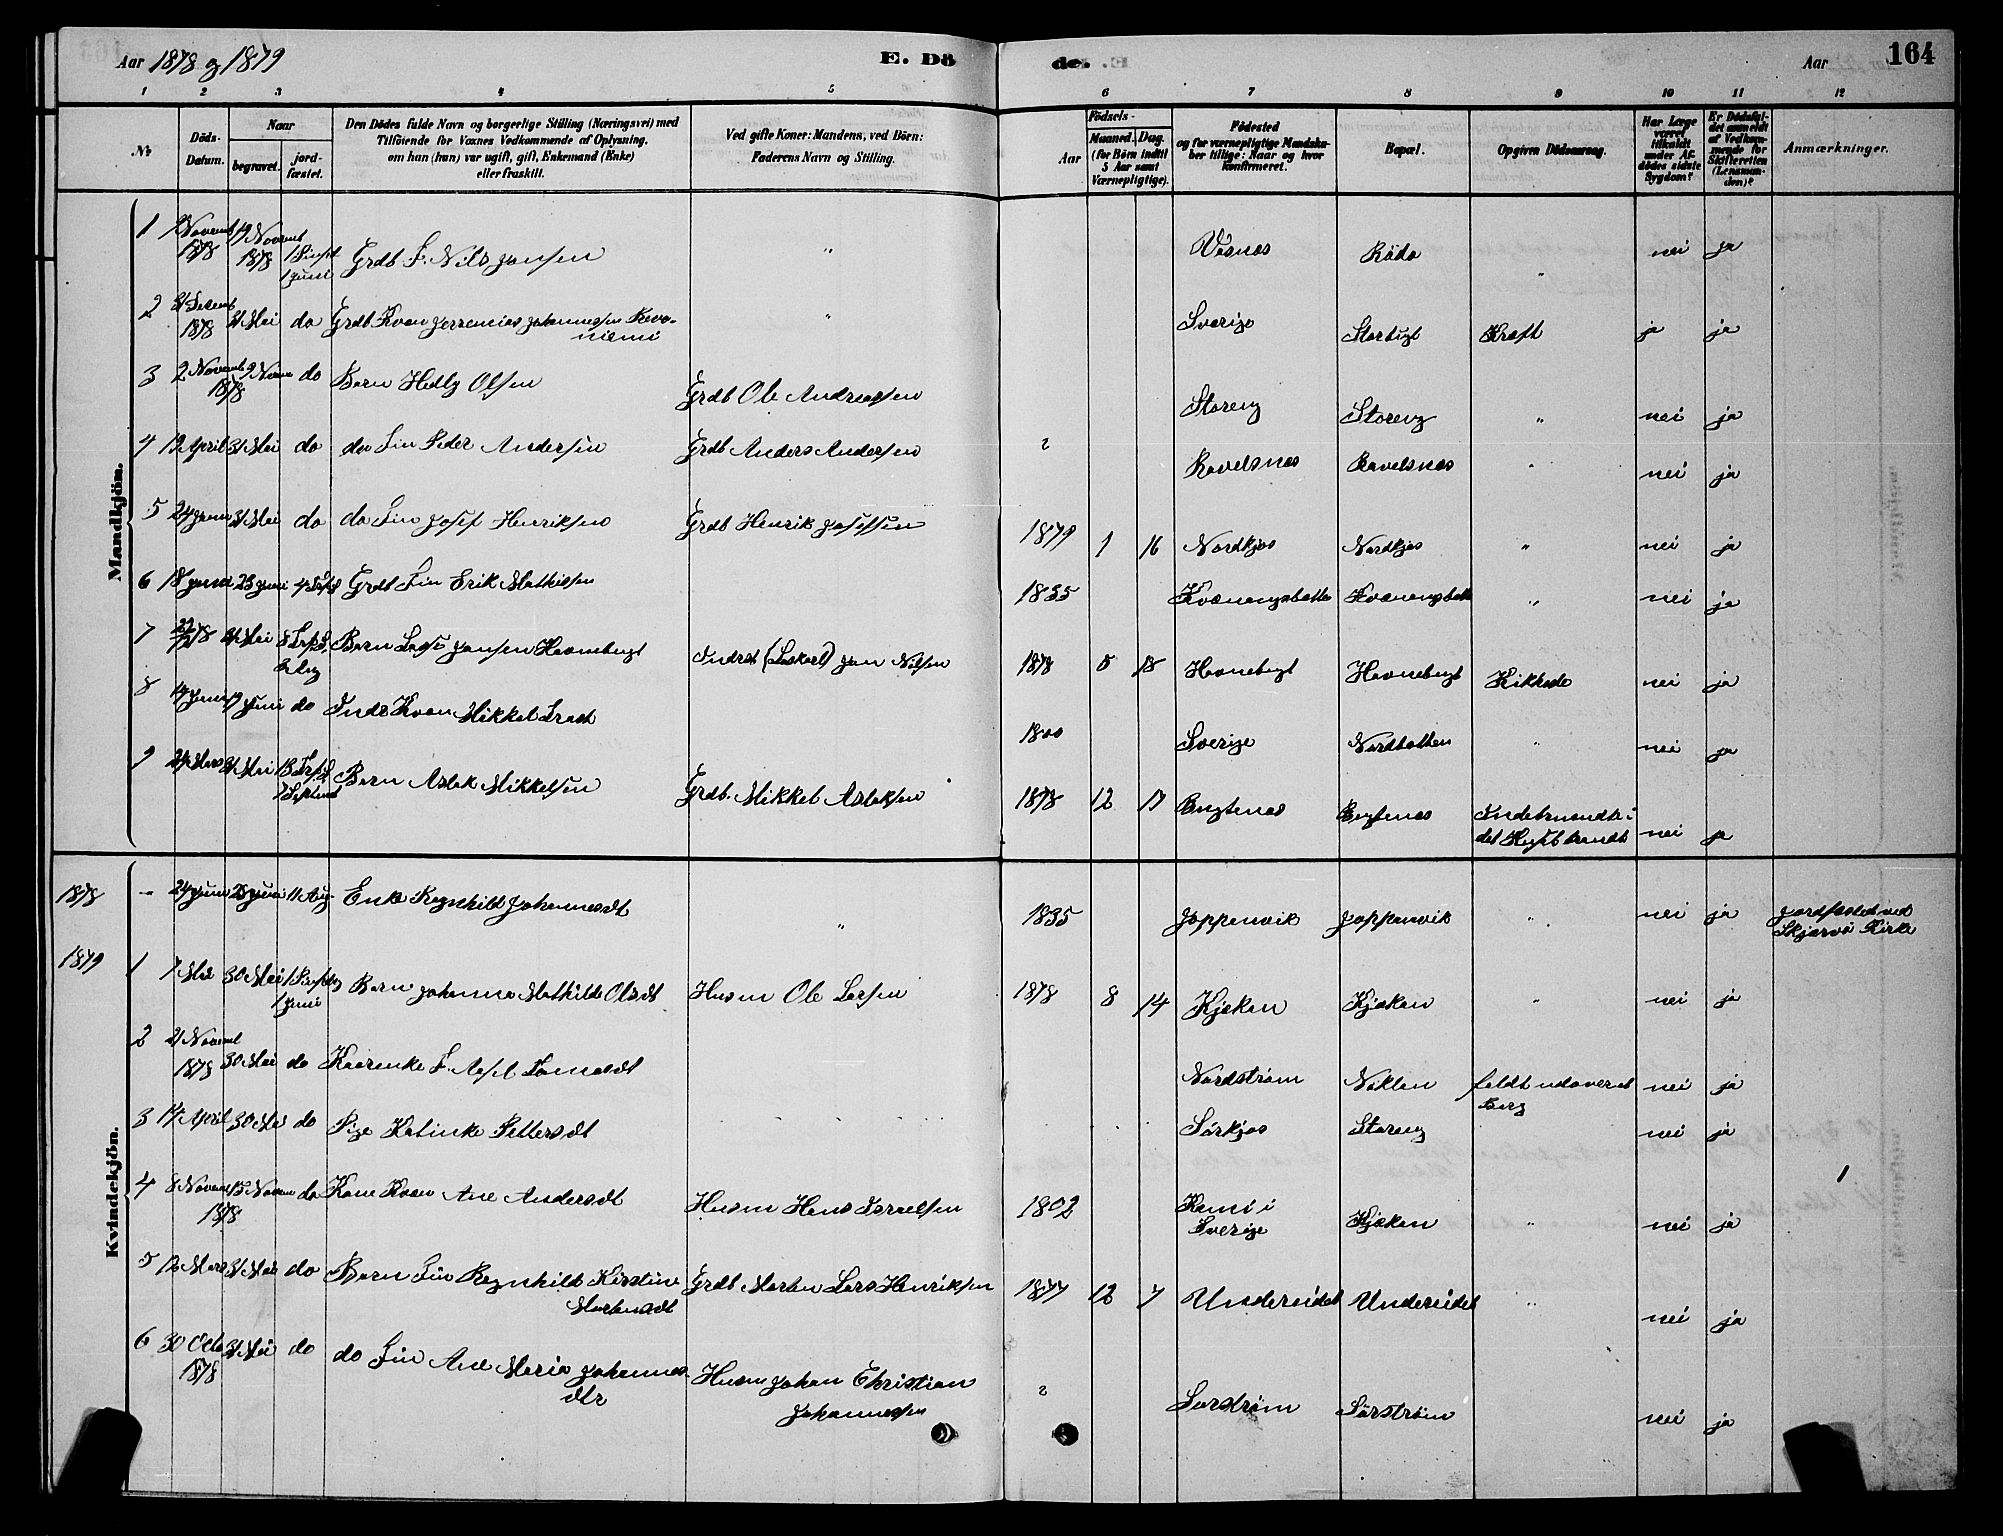 Aar 1878 og 1879
E. Dö
de.
Aar
164
1 2 3 4 5 6 7 8 9 10 11 12
№
Döds-Datum.
Naar
begravet.
jord-fæstet.
Den Dödes fulde Navn og borgerlige Stilling (Næringsvei) med
Tilföiende for Voxnes Vedkommende af Oplysning,
om han (hun) var ugift, gift, Enkemand (Enke)
eller fraskilt.
Ved gifte Koner: Mandens, ved Börn:
Faderens Navn og Stilling.
Födsels-
Aar
Maaned.
Dag.
(for Börn indtil
5 Aar samt
Værnepligtige).
Födested
og for værnepligtige Mandska-
ber tillige: Naar og hvor
konfirmeret.
Bopæl.
Opgiven Dödsaarsag.
Har Læge
været
tilkaldt
under Af-
dödes sidste
Sygdom?
Er Dödsfal-
det anmeldt
af Vedkom-
mende for
Skifteretten
(Lensman-
den)?
Anmærkninger.
Mandkjön.
1 Novemb 1878 19 Novemb 1878 Grdb F. Nils Jansen " Væsnes " nei ja
2 31 Decemb 1878 31 Mai do Grdb Kvæn Jerremias Johannessen niemi " Sverige Storbugt Kræft ja ja
3 2 Novemb 1878 9 Novem do Barn Hedly Olsen Grdb Ole Andreassen Storeng Storeng " nei ja
4 12 April 31 Mai do do Fin Peder Andersen Grdb Anders Andersen Ravelsnæs Ravelsnæs " nei ja
5 24 Juni 31 Mai do do Fin Josef Henriksen Grdb Henrik Josefsen 1879 1 16 Nordkjos Nordkjos " nei ja
6 18 Juni 23 Juni Grdb Fin Erik Mathisen 1835 Kvænangsbotten Kvænangsbotten " nei ja
7 31 Mai Barn Lasse Jansen Havnebugt Inderst Jan Nilsen 1878 5 18 Havnebugt Havnebugt Kikhoste nei ja
8 14 Juni 19 Juni do Inds Kvæn Mikkel 1800 Sverige Nordbotten " nei ja
9 24 Mars 31 Mai Barn Aslak Mikkelsen Grdb. Mikkel Aslaksen 1878 12 17 Bugtenæs Bugtenæs Indebrændt i
det nei ja
Kvindekjön.
1878 - 24 Juni 28 Juni 11 Aug Enke Ragnhild Johannesdt " 1835 Joppenvik Joppenvik " nei ja Jordfæstet ved
Skjærvö Kirke
1879 1 7 Mai 30 Mai 1 Juni Barn Johanna Mathilde Olsdt Husm Ole Larsen 1878 8 14 Kjækan Kjækan " nei ja
2 21 Novemb 1878 30 Mai do Kaarenke F. Tomasdt Nordstrøm Noklen faldt udover et
Berg nei ja
3 14 April 30 Mai do Pige Katinke Pettersdt Sørkjos Storeng nei ja
4 8 Novemb 1878 15 Novem do Kone Kvæn Ane Andersdt Husm Hans Israelsen 1802 Kemi i
Sverige Kjækan " nei ja
5 12 Mars 31 Mai do Barn Fin Ragnhild Kirstine
Mortensdt Grdb Morten Lars Henriksen 1877 12 7 Undereidet Undereidet " nei ja
6 30 Octb 1878 31 Mai do do Fin Ane Maria Johannes
dtr Husm Johan Christian
Johannessen Sørstrøm Sørstrøm nei ja